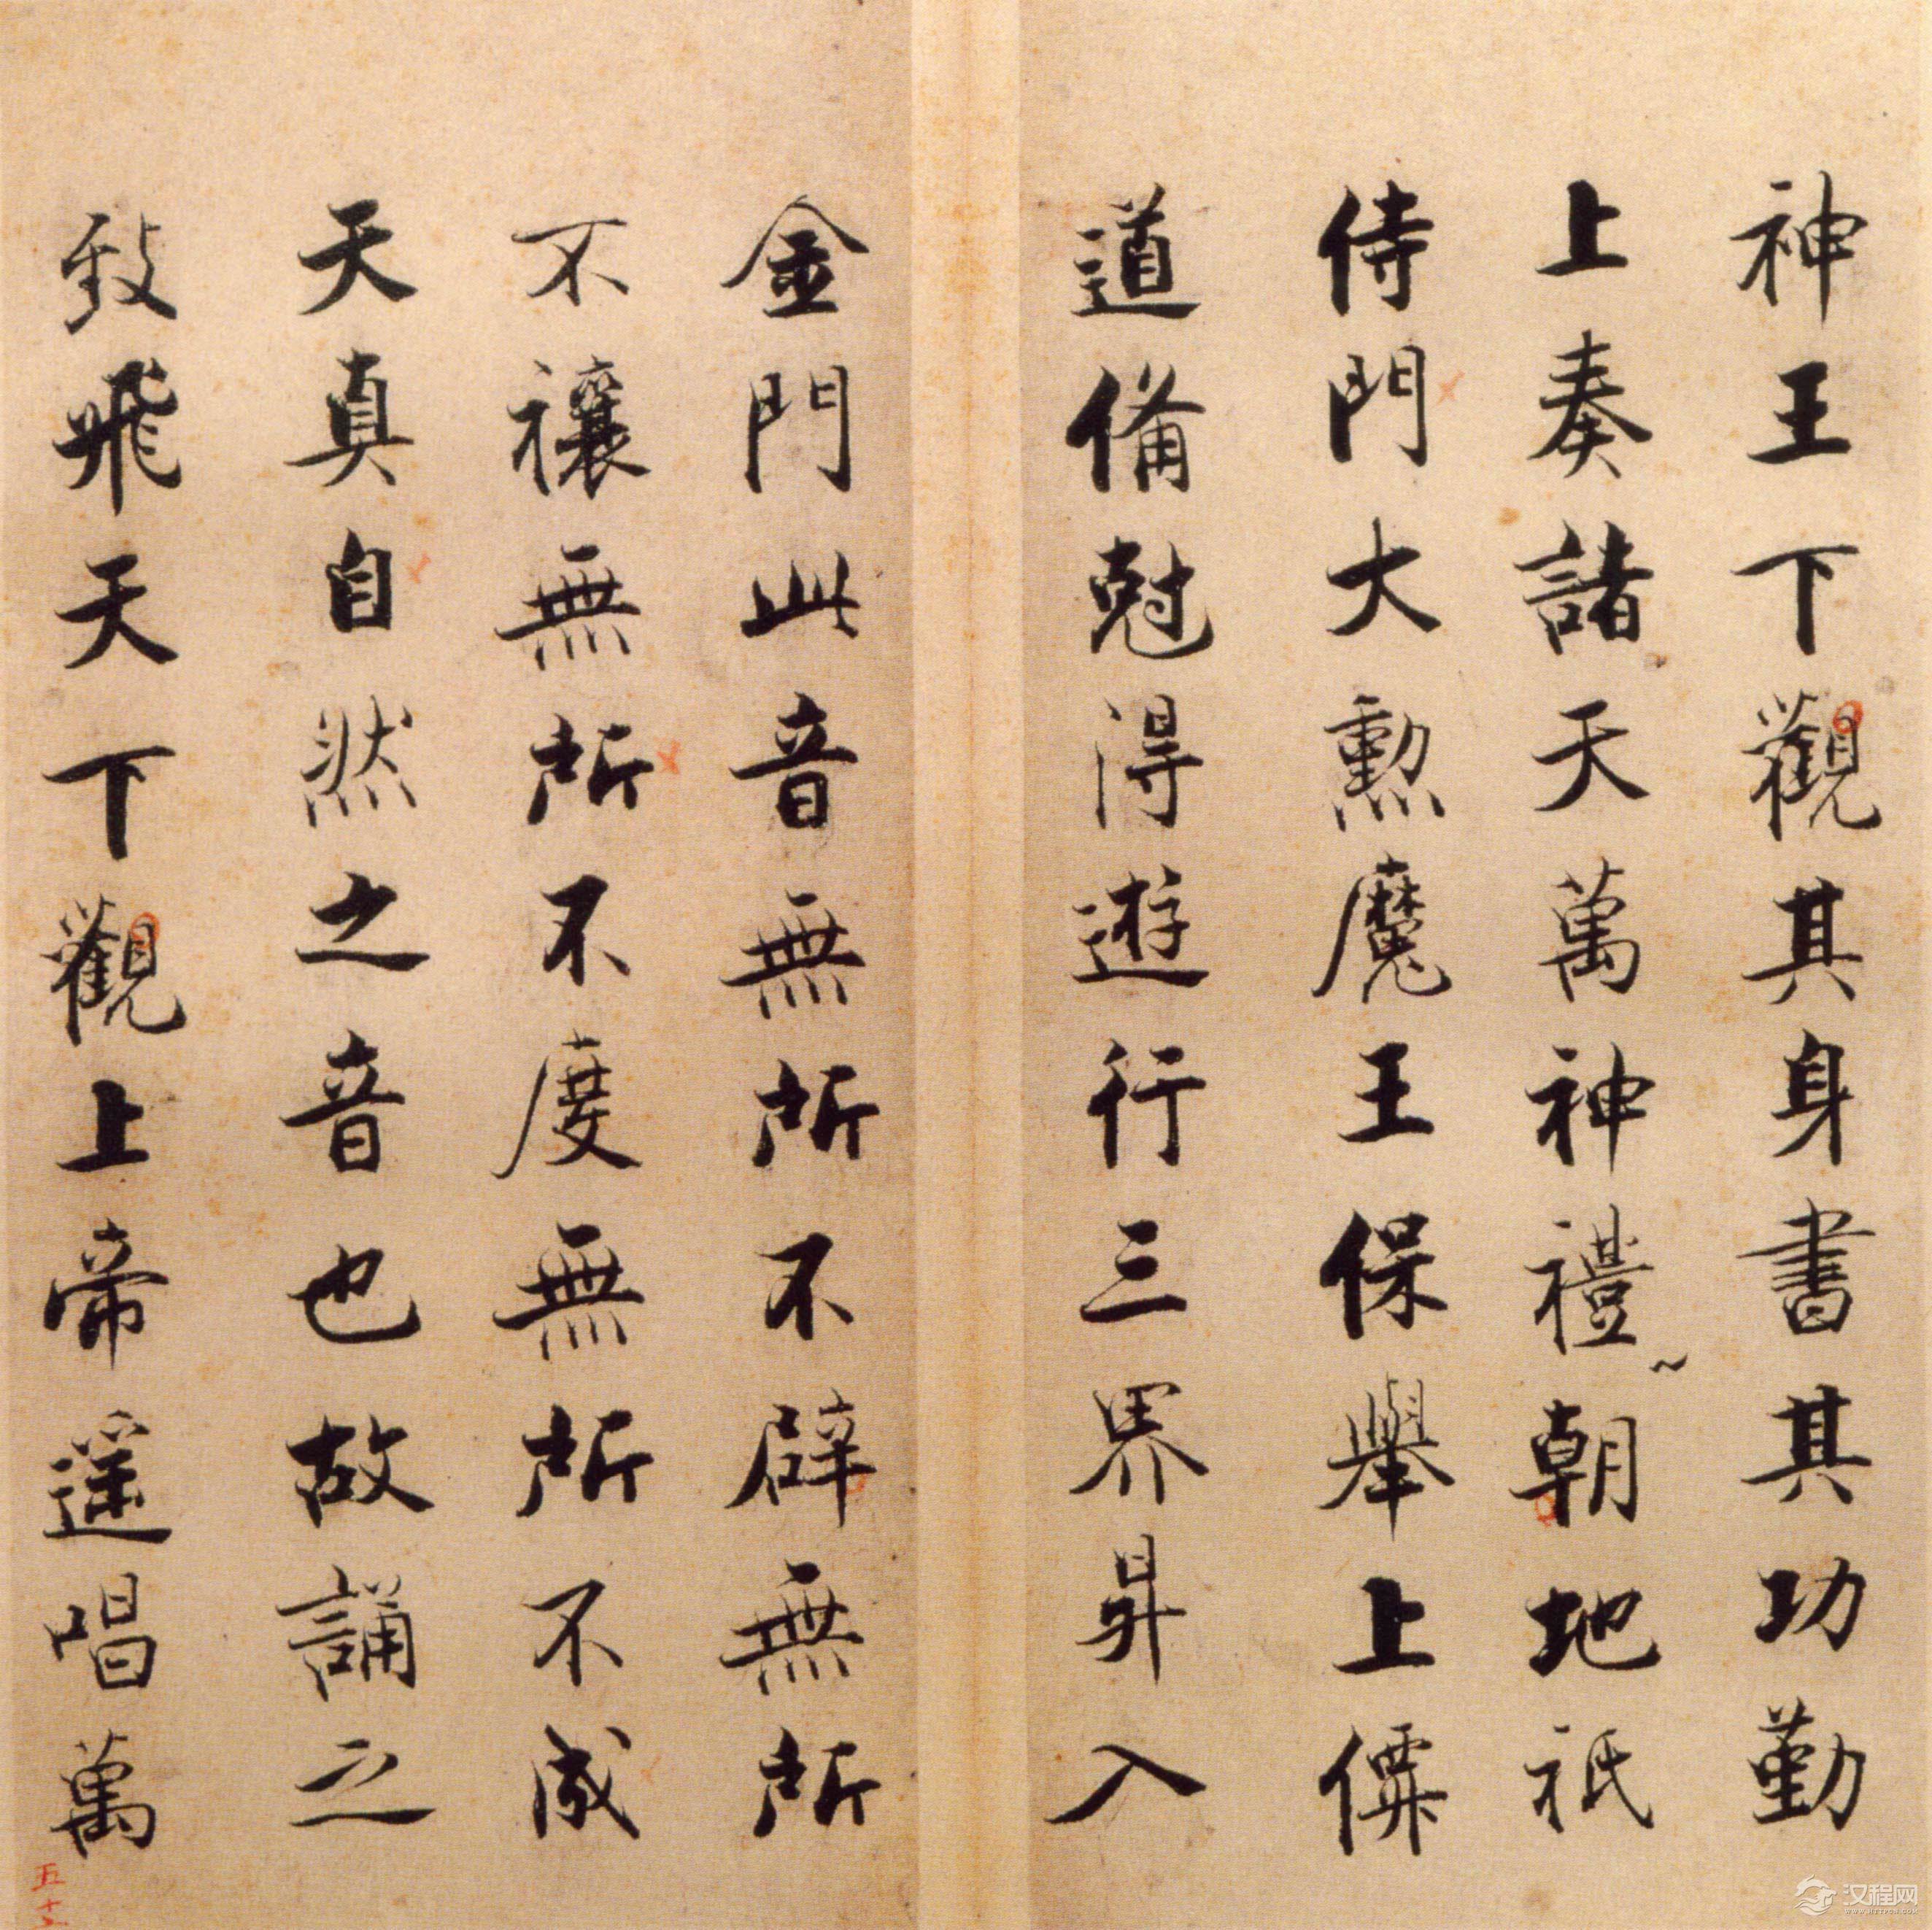 神王下觀其身書其功勤
上奏諸天萬神禮朝地祇
侍門大勲魔王保舉上僊
道備尅得遊行三界昇入
金門此音無所不辟無所
不禳無所不度無所不成
天真自然之音也故誦之
致飛天下觀上帝遥唱萬
五十
汉程网